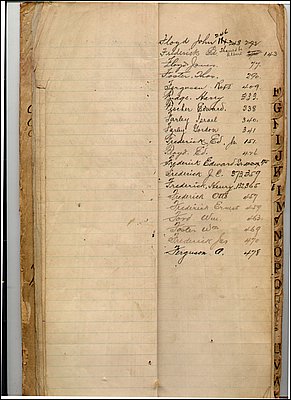 Floyd John 298
Frederick Ed. 143
Floyd James 77
Foster, Thos. 290
Ferguson Robt 409
Fudge, Henry 333.
Fischer Edward. 338
Farley Israel 340.
Farley Gordon 341
Frederick, Ed. Jr 151.
Floyd, Ed. 426
Frederick Edward
Frederick J.C. 373 359
Frederick, Henry 365
Frederick Otto 457
Frederick Ernest 459
Ford Wm. 463
Foster Wm 469
Frederick Jas 470
Ferguson A. 478
F
G
I
J
K
L
M
N
O
P
Q
R